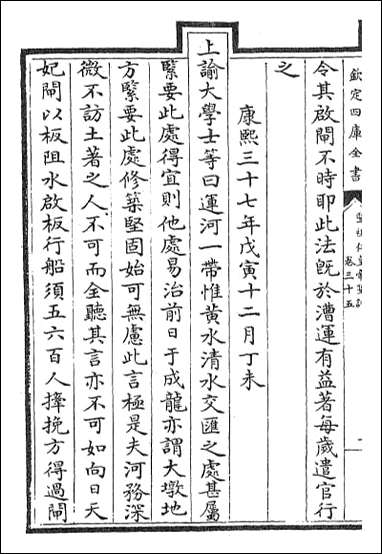 欽定四庫全書
卷三十五
令其啟閘不時耶此法旣於漕運有益著每歲遣官行
之
康熙三十七年戊寅十二月丁未
上諭大學士等曰運河一帶惟黃水清水交匯之處甚屬
緊要此處得宜則他處易治前日于成龍亦謂大墩地
方緊要此處修築堅固始可無慮此言極是夫河務深
微不訪土著之人不可而全聽其言亦不可如向日天
妃閘以板阻水啟板行船須五六百人撁挽方得過閘